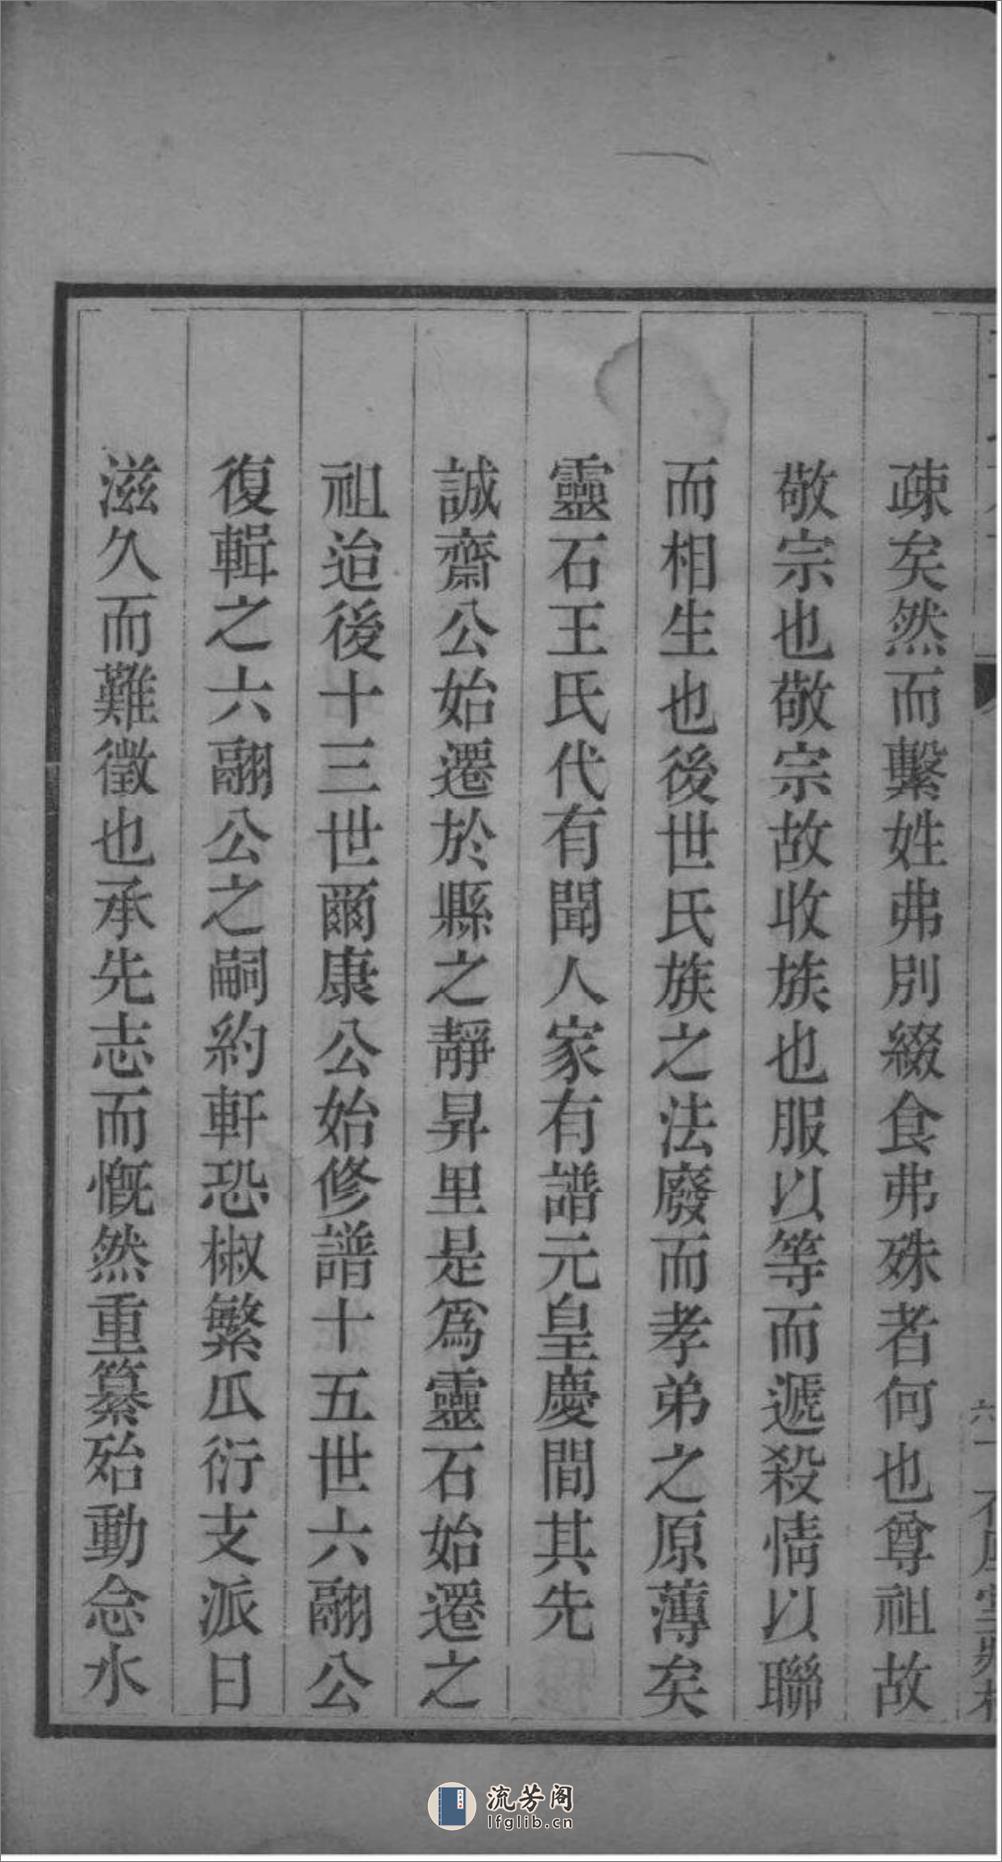 疎矣然而繫姓弗別綴食弗殊者何也尊祖故
敬宗也敬宗故收族也服以等而遞殺情以聯
而相生也後世氏族之法廢而孝弟之原薄矣
靈石王氏代有聞人家有譜元皇慶間其先
誠齋公始遷於縣之靜昇里是爲靈石始遷之
祖迨後十三世爾康公始修譜十五世六翮公
復輯之六翮公之嗣約軒恐椒繁瓜衍支派日
滋久而難徵也承先志而慨然重纂殆動念水
流芳阁
lfglib.cn